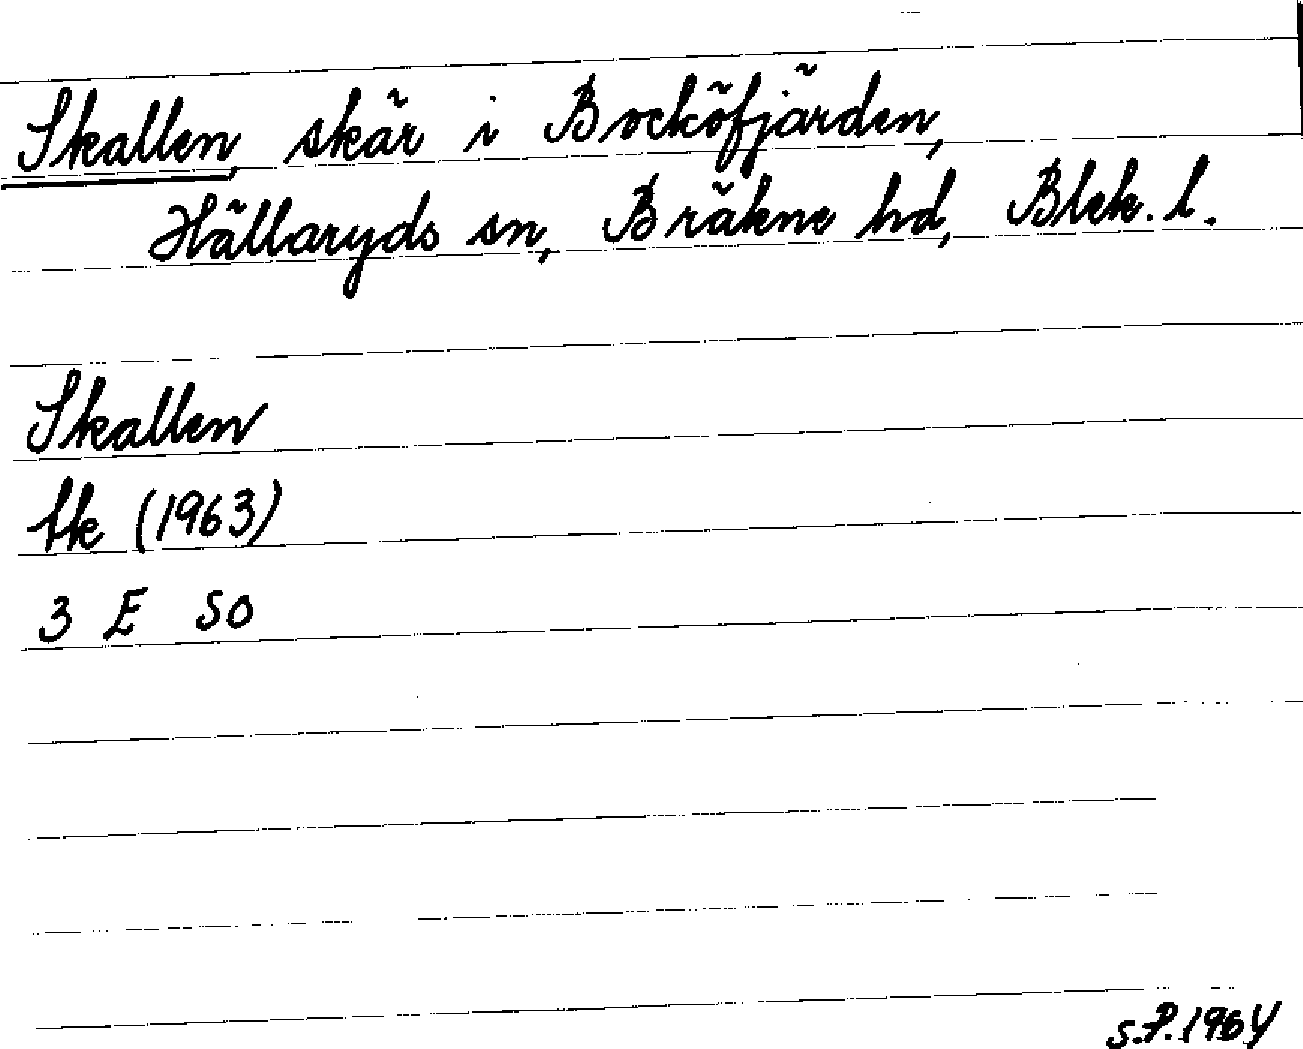 Skallen, skär i Bocköfjärden,
Hällaryds sn, Bräkne hd, Blek. l.
Skallen
tk (1963)
3 E SO
S.P. 1964